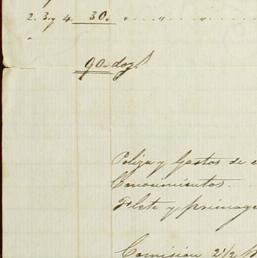 2. 3. y 4. 30. " " " "
"
90. doz.
Poliza y Gastos de
Conocimientos.
Flete y primage
Comision 2 1/2